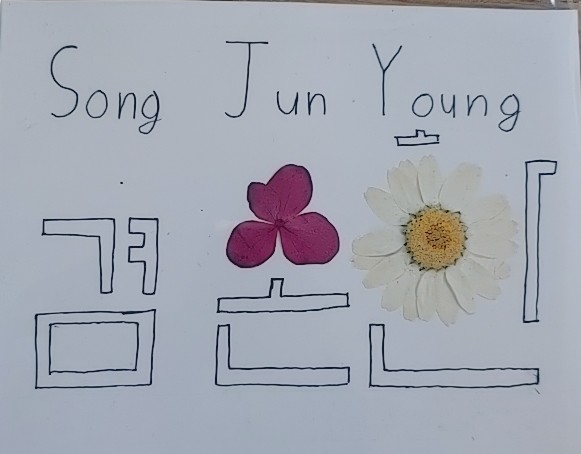 Song Jun Young
겸